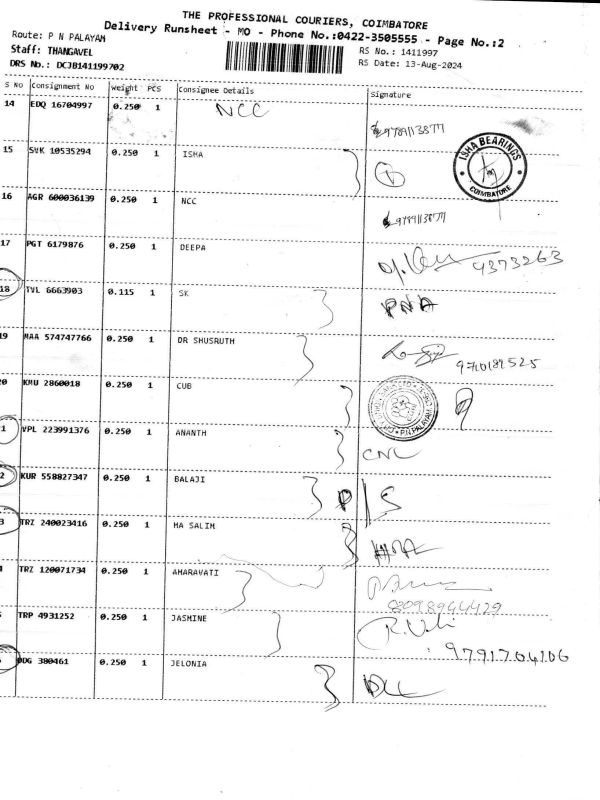 THE PROFESSIONAL COURIERS, COIMBATORE
Delivery Runsheet - MO - Phone No.:0422-3505555 - Page No.:2
Route: P N PALAYAM
RS No.: 1411997
Staff: THANGAVEL
RS Date: 13-Aug-2024
DRS No.: DCJB141199702
S No Consignment No Weight PCS Consignee Details Signature
14 EDQ 16704997 0.250 1 NCC
9789113877
15 SVK 10535294 0.250 1 ISHA
ISHA BEARINGS
COIMBATORE
16 AGR 600036139 0.250 1 NCC
9789113877
17 PGT 6179876 0.250 1 DEEPA
9373263
18 TVL 6663903 0.115 1 SK
PNA
19 MAA 574747766 0.250 1 DR SHUSRUTH
9710189525
20 KMU 2860018 0.250 1 CUB
P.N.PALAYAM
1 VPL 223991376 0.250 1 ANANTH
CNL
2 KUR 558827347 0.250 1 BALAJI
3 TRZ 240023416 0.250 1 MA SALIM
4 TRZ 120071734 0.250 1 AMARAVATI
8098944429
TRP 4931252 0.250 1 JASMINE
9791704106
ODG 380461 0.250 1 JELONIA